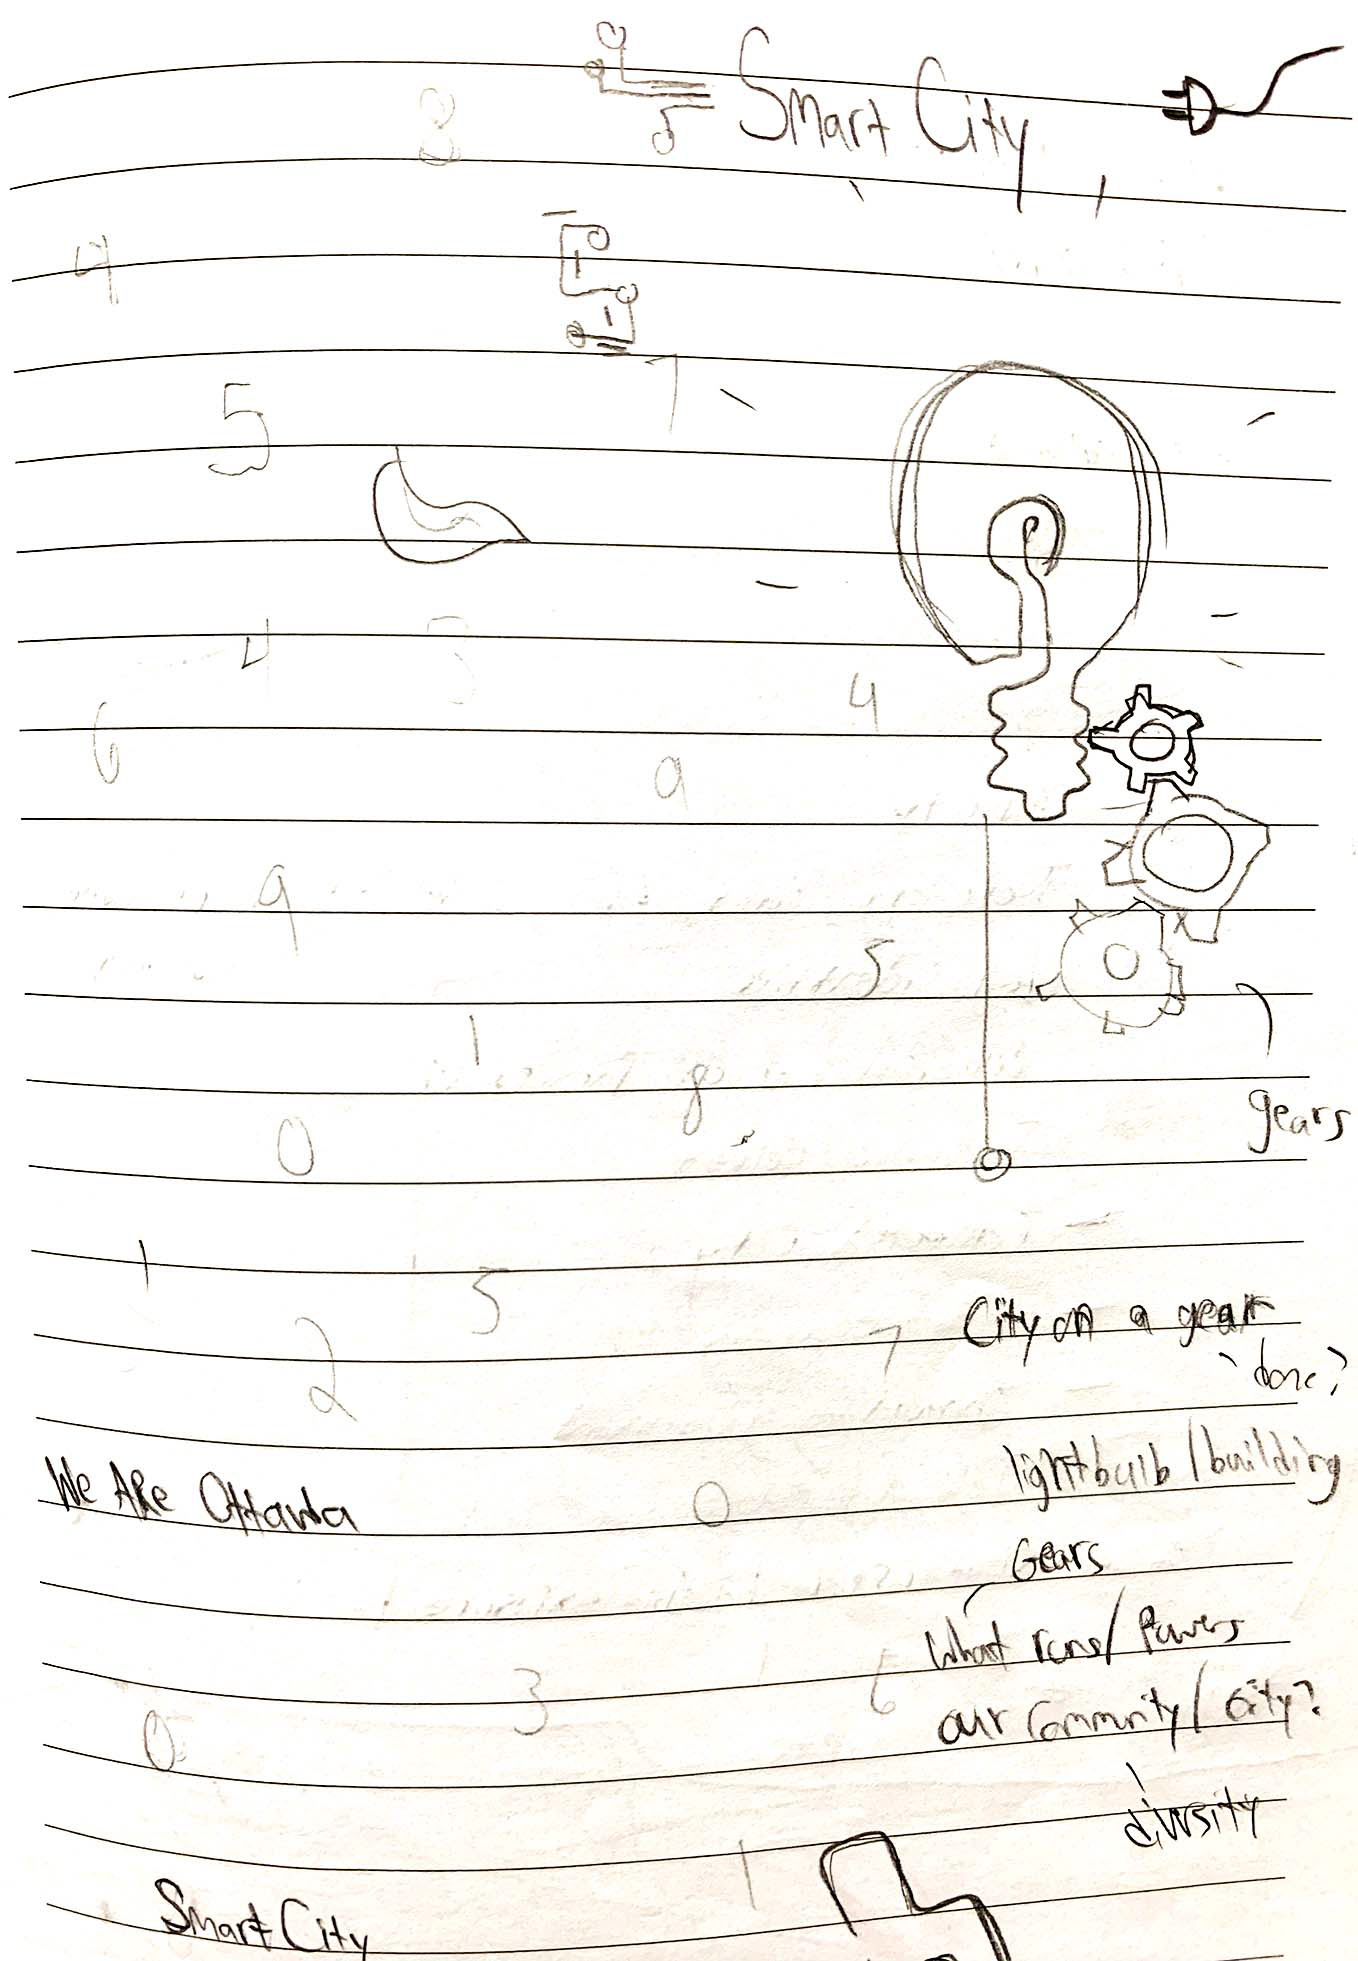 Smart City
8
4
7
5
4 3
4
6
9
9
5
1
8
gears
0
1
5
City on a gear
2
7
done?
lightbulb/building
We ARe Ottawa
0
Gears
What runs/Powers
3 6
our community/city?
0
divsity
1
Smart City